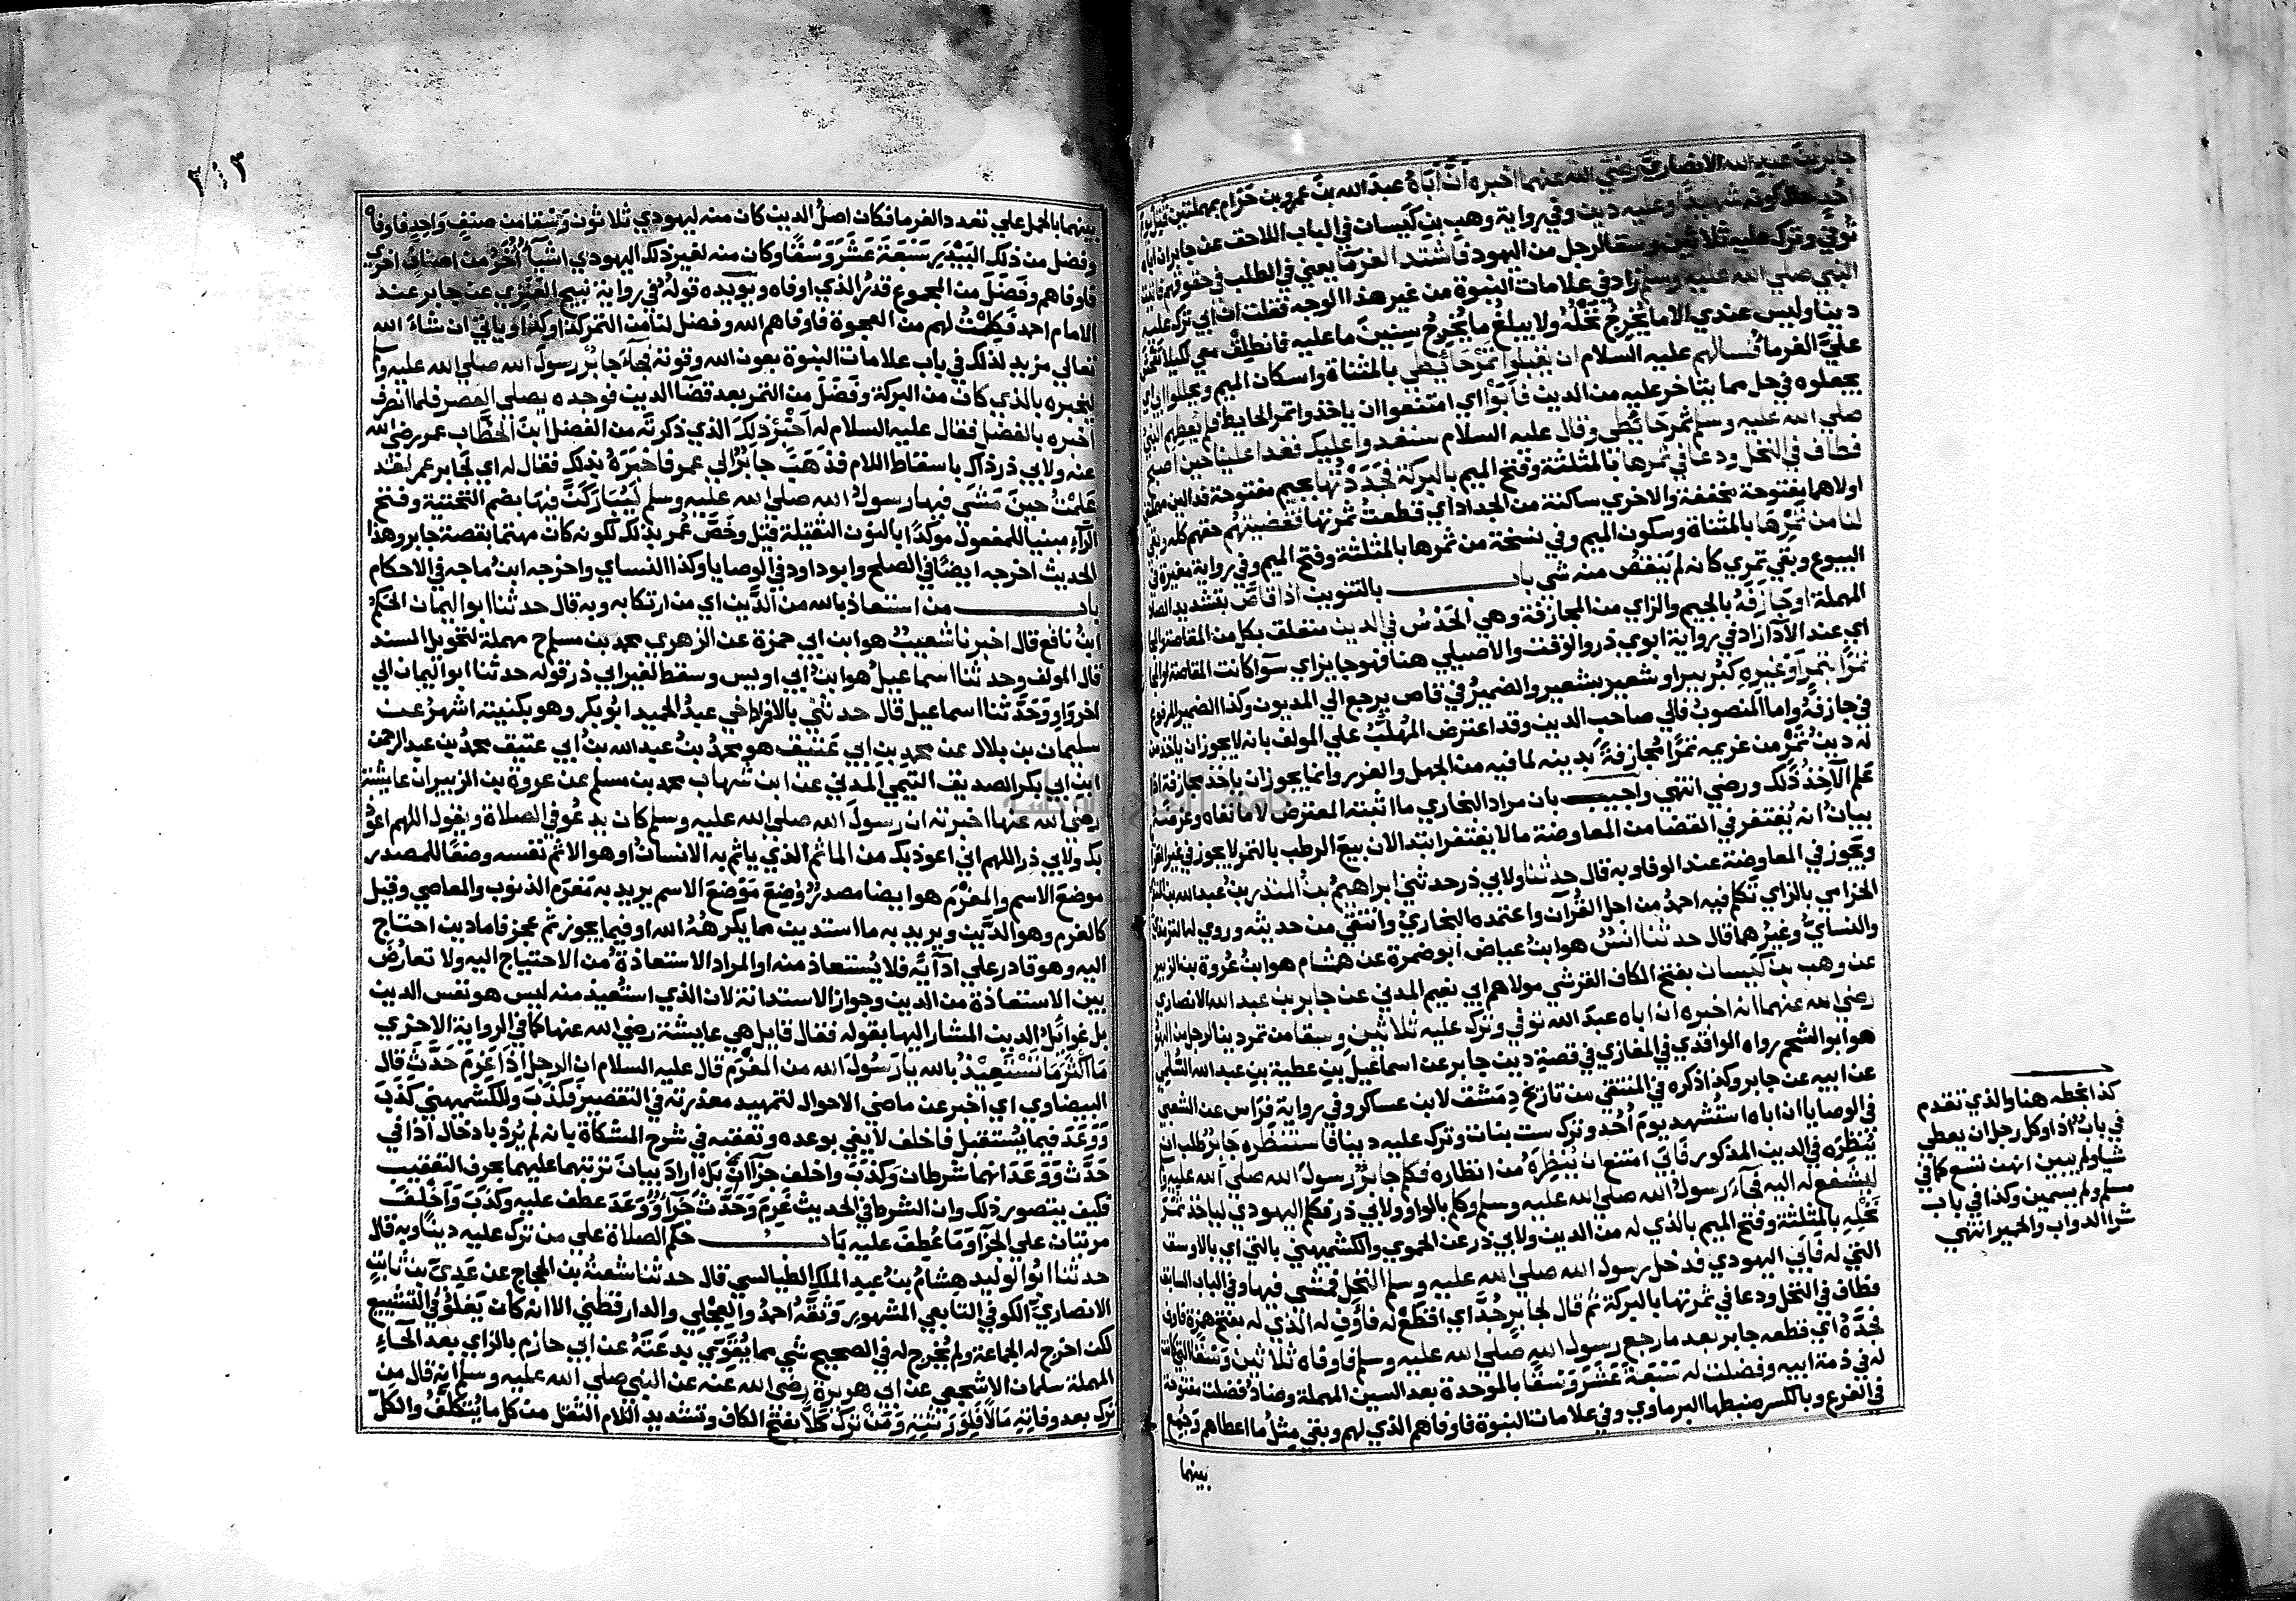 جابر بن عبد الله الانصاري رضي الله عنهما اخبره ان اباه عبد الله بن عمرو بن حرام بمهملتين قتل يوم
احد حال كونه شهيدا وعليه دين وفي رواية وهب بن كيسان في الباب اللاحق عن جابر ان اباه
توفي وترك عليه ثلاثين وسقا لرجل من اليهود فاشتد الغرما يعني في الطلب في حقوقهم فاتيت
النبي صلي الله عليه وسلم زاد في علامات النبوة من غير هذا الوجه فقلت ان ابي ترك عليه
دينا وليس عندي الا ما يخرج نخله ولا يبلغ ما يخرج سنين ما عليه فانطلق معي لكيلا يفحش
علي الغرما فسالهم عليه السلام ان يقبلوا تمر حائطي بالمثناة واسكان الميم ويحللوا ابي اي
يجعلوه في حل مما يتاخر عليه من الدين فابوا اي امتنعوا ان ياخذوا تمر الحايط فلم يعطهم النبي
صلي الله عليه وسلم ثمر حائطي وقال عليه السلام سنغدوا عليك فغدا علينا حين اصبح
فطاف في النخل ودعا في ثمرها بالمثلثة وفتح الميم بالبركة فجددتها بجيم مفتوحة فدالين مهملتين
اولاهما مفتوحة مخففة والاخري ساكنة من الجداد اي قطعت ثمرتها فقضيتهم حقهم كله وبقي
لنا من تمرها بالمثناة وسكون الميم وفي نسخة من ثمرها بالمثلثة وفتح الميم وفي رواية مغيرة في
البيوع وبقي تمري كانه لم ينقص منه شي باب بالتنوين اذا قاص بتشديد الصاد
المهملة او جازفه بالجيم والزاي من المجازفة وهي الحدس في الدين متعلق بكل من المقاصة والمجازفة
اي عند الادآ زاد في رواية ابوي ذر والوقت والاصيلي هنا فهو جايز اي سوآ كانت المقاصة او المجازفة
تمرا بتمر او غيره كبر ببر او شعير بشعير والضمير في قاص يرجع الي المديون وكذا الضمير المرفوع
في جازفه واما المنصوب فالي صاحب الدين وقد اعترض المهلب علي المولف بانه لا يجوز ان ياخذ من
له دين تمر من غريمه تمرا مجازفة بدينه لما فيه من الجهل والغرر وانما يجوز ان ياخذ مجازفة اذا
علم الآخذ ذلك ورضي انتهي واجيب بان مراد البخاري ما اثبته المعترض لا ما نفاه وغرضه
بيان انه يغتفر في القضا من المعاوضة ما لا يغتفر ابتدا لان بيع الرطب بالتمر لا يجوز في غير العرايا
ويجوز في المعاوضة عند الوفا وبه قال حدثنا ولابي ذر حدثني ابراهيم بن المنذر بن عبد الله بن المنذر
الحزامي بالزاي تكلم فيه احمد من اجل القرآن واعتمده البخاري وانتقي من حديثه وروي له الترمذي
والنساي وغيرهما قال حدثنا انس هو ابن عياض ابو ضمرة عن هشام هو ابن عروة بن الزبير
عن وهب بن كيسان بفتح الكاف القرشي مولاهم ابي نعيم المدني عن جابر بن عبد الله الانصاري
رضي الله عنهما انه اخبره ان اباه عبد الله توفي وترك عليه ثلاثين وسقا من تمر دينا لرجل من اليهود
هو ابو الشحم رواه الواقدي في المغازي في قصة دين جابر عن اسماعيل بن عطية بن عبد الله السلمي
عن ابيه عن جابر وكذا ذكره في المنتقي من تاريخ دمشق لابن عساكر وفي رواية فراس عن الشعبي
في الوصايا ان اباه استشهد يوم احد وترك ست بنات وترك عليه دينا فاستنظره جابر طلب ان
ينظره في الدين المذكور فابي امتنع ان ينظره من انظاره فكلم جابر رسول الله صلي الله عليه وسلم
ليشفع له اليه فجآء رسول الله صلي الله عليه وسلم وكلم بالواو ولابي ذر فكلم اليهودي لياخذ ثمر
نخله بالمثلثة وفتح الميم بالذي له من الدين ولابي ذر عن الحموي والكشميهني بالتي اي بالاوسق
التي له فابي اليهودي فدخل رسول الله صلي الله عليه وسلم النخل فمشي فيها وفي الباب السابق
فطاف في النخل ودعا في ثمرتها بالبركة ثم قال لجابر جد اي اقطع له فاوف له الذي له بفتح همزة فاوف
فجده اي قطعه جابر بعد ما رجع رسول الله صلي الله عليه وسلم فاوفاه ثلاثين وسقا التي كانت
له في ذمة ابيه وفضلت له سبعة عشر وسقا بالموحدة بعد السين المهملة وضاد فضلت مفتوحة
في الفرع وبالكسر ضبطها البرماوي وفي علامات النبوة فاوفاهم الذي لهم وبقي مثل ما اعطاهم وجمع
بينهما
كذا بخطه هنا والذي تقدم
في باب اذا وكل رجل ان يعطي
شيا ولم يبين انهن تسع كما في
مسلم ولم يسمين وكذا في باب
شرا الدواب والحمير انتهي
٣٠٣
بينهما بالحمل علي تعدد الغرما فكان اصل الدين كان منه ليهودي ثلاثون وسقا من صنف واحد فاوفاه
وفضل من ذلك البيدر سبعة عشر وسقا وكان منه لغير ذلك اليهودي اشيآء اخر من اصناف اخري
فاوفاهم وفضل من المجموع قدر الذي اوفاه ويويده قوله في رواية نبيح العنزي عن جابر عند
الامام احمد فكلت لهم من العجوة فاوفاهم الله وفضل لنا من التمر كذا وكذا وياتي ان شاء الله
تعالي مزيد لذلك في باب علامات النبوة بعون الله وقوته فجآء جابر رسول الله صلي الله عليه وسلم
ليخبره بالذي كان من البركة وفضل من التمر بعد قضآ الدين فوجده يصلي العصر فلما انصرف
اخبره بالفضل فقال عليه السلام له اخبر ذلك الذي ذكرته من الفضل ابن الخطاب عمر رضي الله
عنه ولابي ذر ذاك باسقاط اللام فذهب جابر الي عمر فاخبره بذلك فقال له اي لجابر عمر لقد
علمت حين مشي فيها رسول الله صلي الله عليه وسلم ليباركن فيها بضم التحتية وفتح
الرآء مبنيا للمفعول موكدا بالنون الثقيلة قيل وخص عمر بذلك لكونه كان مهتما بقصة جابر وهذا
الحديث اخرجه ايضا في الصلح وابو داود في الوصايا وكذا النساي واخرجه ابن ماجه في الاحكام
باب من استعاذ بالله من الدين اي من ارتكابه وبه قال حدثنا ابو اليمان الحكم
ابن نافع قال اخبرنا شعيب هو ابن ابي حمزة عن الزهري محمد بن مسلم ح مهملة لتحويل السند
قال المولف وحدثنا اسماعيل هو ابن ابي اويس وسقط لغير ابي ذر قوله حدثنا ابو اليمان الي
اخر واو وحدثنا اسماعيل قال حدثني بالافراد اخي عبد الحميد ابو بكر وهو بكنيته اشهر عن
سليمان بن بلال عن محمد بن ابي عتيق هو محمد بن عبد الله بن ابي عتيق محمد بن عبد الرحمن
ابن ابي بكر الصديق التيمي المدني عن ابن شهاب محمد بن مسلم عن عروة بن الزبير ان عايشة
رضي الله عنها اخبرته ان رسول الله صلي الله عليه وسلم كان يدعو في الصلاة ويقول اللهم اعوذ
بك ولابي ذر اللهم اني اعوذ بك من الماثم الذي ياثم به الانسان او هو الاثم نفسه وضعا للمصدر
موضع الاسم والمغرم هو ايضا مصدر وضع موضع الاسم يريد به مغرم الذنوب والمعاصي وقيل
كالغرم وهو الدين ويريد به ما استدين مما يكرهه الله او فيما يجوز ثم عجز فاما دين احتاج
اليه وهو قادر علي ادآئه فلا يستعاذ منه او المراد الاستعاذة من الاحتياج اليه ولا تعارض
بين الاستعاذة من الدين وجواز الاستدانة لان الذي استعيذ منه ليس هو نفس الدين
بل غوائل الدين المشار اليها بقوله فقال قايل هي عايشة رضي الله عنها كما في الرواية الاخري
ما اكثر ما تستعيذ بالله يا رسول الله من المغرم قال عليه السلام ان الرجل اذا غرم حدث قال
البيضاوي اي اخبر عن ماضي الاحوال لتمهيد معذرته في التقصير فكذب وللكشميهني كذب
ووعد فيما يستقبل فاخلف لا يفي بوعده وتعقبه في شرح المشكاة بانه لم يرد بادخال اذا في
حدث ووعد انهما شرطان وكذب واخلف جزآان بل اراد بيان ترتبهما عليهما بحرف التعقيب
فكيف يتصور ذلك وان الشرط في الحديث غرم وحدث جزآء ووعد عطف عليه وكذب واخلف
مرتبان علي الجزآ وما عطف عليه باب حكم الصلاة علي من ترك عليه دينا وبه قال
حدثنا ابو الوليد هشام بن عبد الملك الطيالسي قال حدثنا شعبة بن الحجاج عن عدي بن ثابت
الانصاري الكوفي التابعي المشهور وثقه احمد والعجلي والدارقطني الا انه كان يغلو في التشيع
لكن اخرج له الجماعة ولم يخرج له في الصحيح شي مما يقوي بدعته عن ابي حازم بالزاي بعد الحآء
المهملة سلمان الاشجعي عن ابي هريرة رضي الله عنه عن النبي صلي الله عليه وسلم انه قال من
ترك بعد وفاته مالا فلورثته ومن ترك كلا بفتح الكاف وتشديد اللام الثقل من كل ما يتكلف والكل